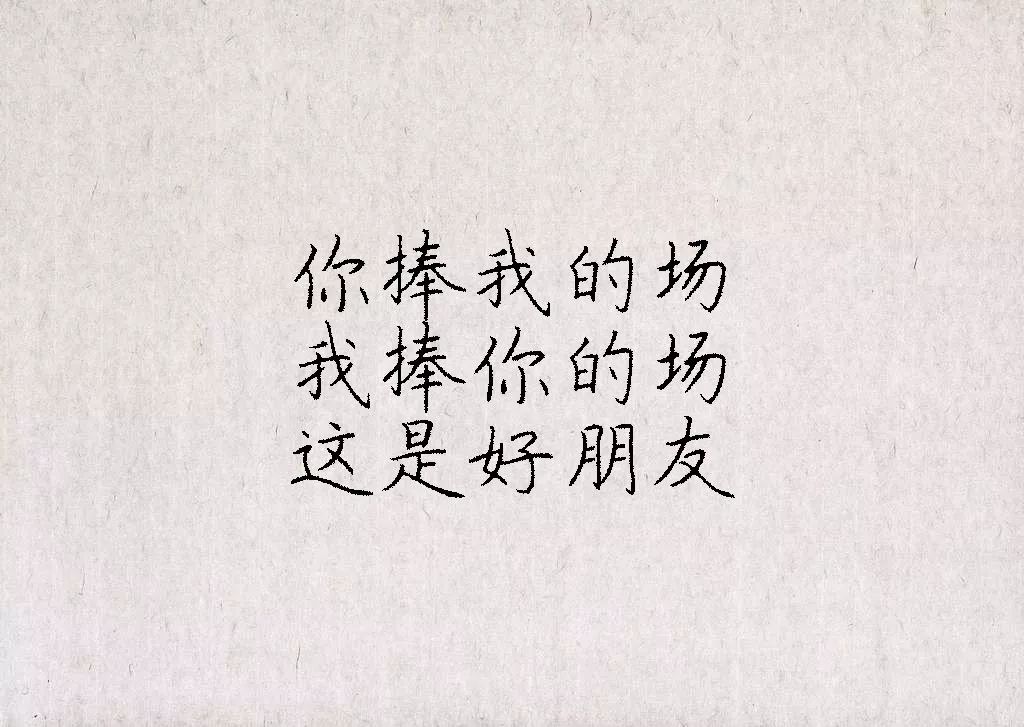 你捧我的场
我捧你的场
这是好朋友